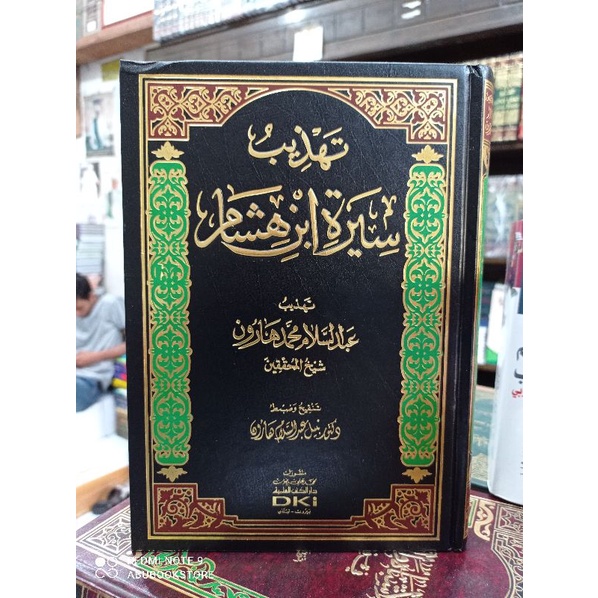 تهذيب
سيرة ابن هشام
تهذيب
عبد السلام محمد هارون
شيخ المحققين
تنقيح وضبط
دكتور نبيل عبد السلام هارون
منشورات
محمد علي بيضون
دار الكتب العلمية
DKi
بيروت - لبنان
REDMI NOTE 9
ABUBOOKSTORE